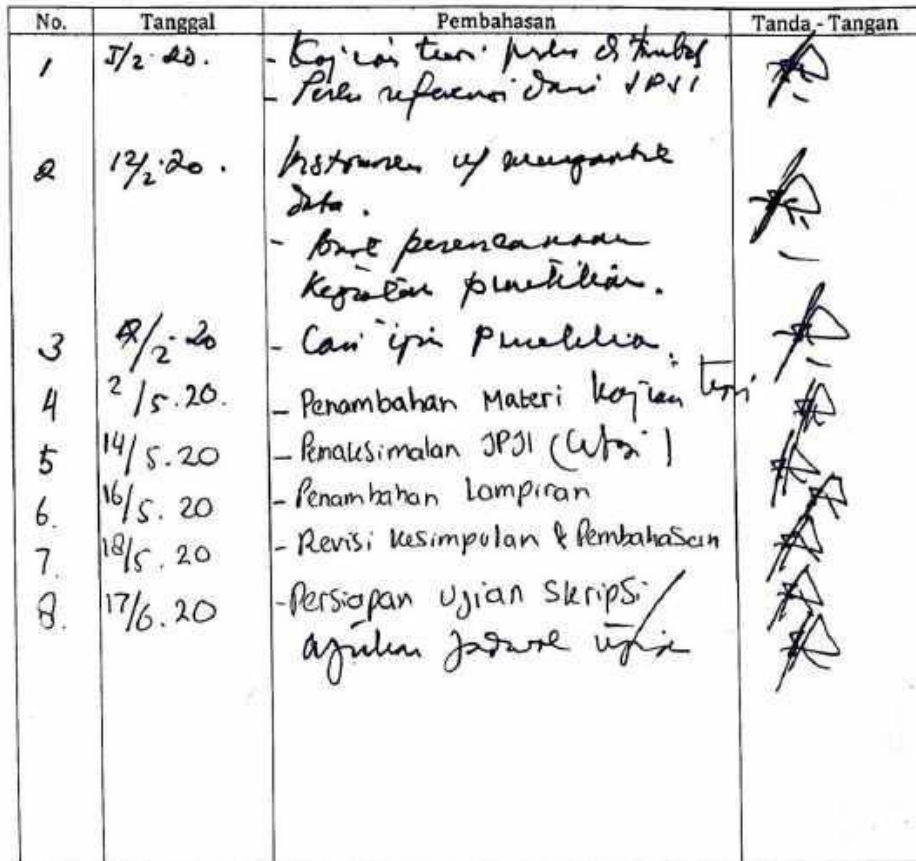 No. Tanggal Pembahasan Tanda - Tangan
1 5/2.20. - Kajian teori perlu di tambah
- Perlu referensi dari JPJI
2 12/2.20. Instrumen u/ mengambil
data.
- perencanaan
kegiatan penelitian.
3 /2.20 - Cari ijin Penelitian.
4 2/5.20. - Penambahan Materi kajian teori
5 14/5.20 - Pemaksimalan JPJI
6. 16/5.20 - Penambahan Lampiran
7. 18/5.20 - Revisi kesimpulan & Pembahasan
8. 17/6.20 - Persiapan Ujian Skripsi
ajukan jadwal ujian